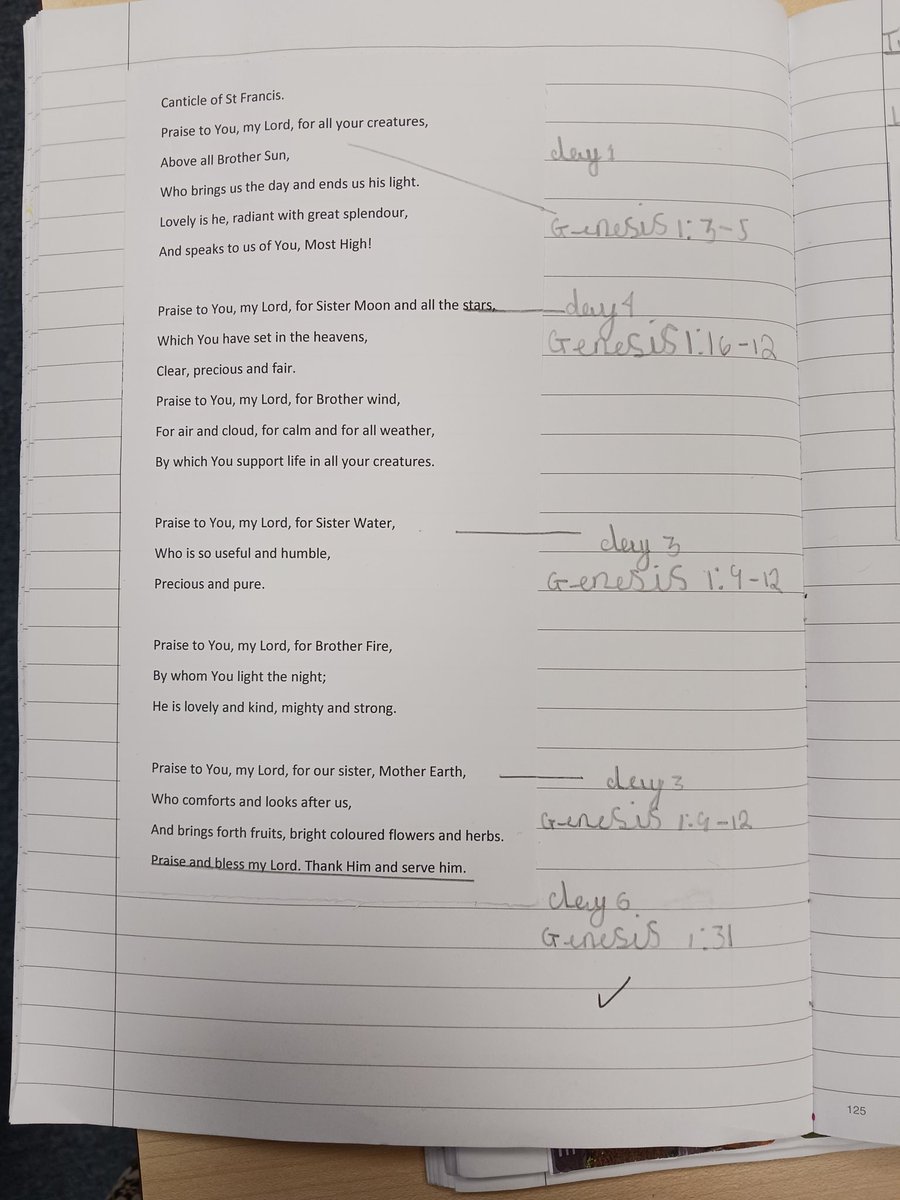 Canticle of St Francis.
Praise to You, my Lord, for all your creatures,
Above all Brother Sun,
Who brings us the day and ends us his light.
Lovely is he, radiant with great splendour,
And speaks to us of You, Most High!
day 1
Genesis 1:3-5
Praise to You, my Lord, for Sister Moon and all the stars,
Which You have set in the heavens,
Clear, precious and fair.
Praise to You, my Lord, for Brother wind,
For air and cloud, for calm and for all weather,
By which You support life in all your creatures.
day 4
Genesis 1:16-12
Praise to You, my Lord, for Sister Water,
Who is so useful and humble,
Precious and pure.
day 3
Genesis 1:9-12
Praise to You, my Lord, for Brother Fire,
By whom You light the night;
He is lovely and kind, mighty and strong.
Praise to You, my Lord, for our sister, Mother Earth,
Who comforts and looks after us,
And brings forth fruits, bright coloured flowers and herbs.
Praise and bless my Lord. Thank Him and serve him.
day 3
Genesis 1:9-12
day 6
Genesis 1:31
125